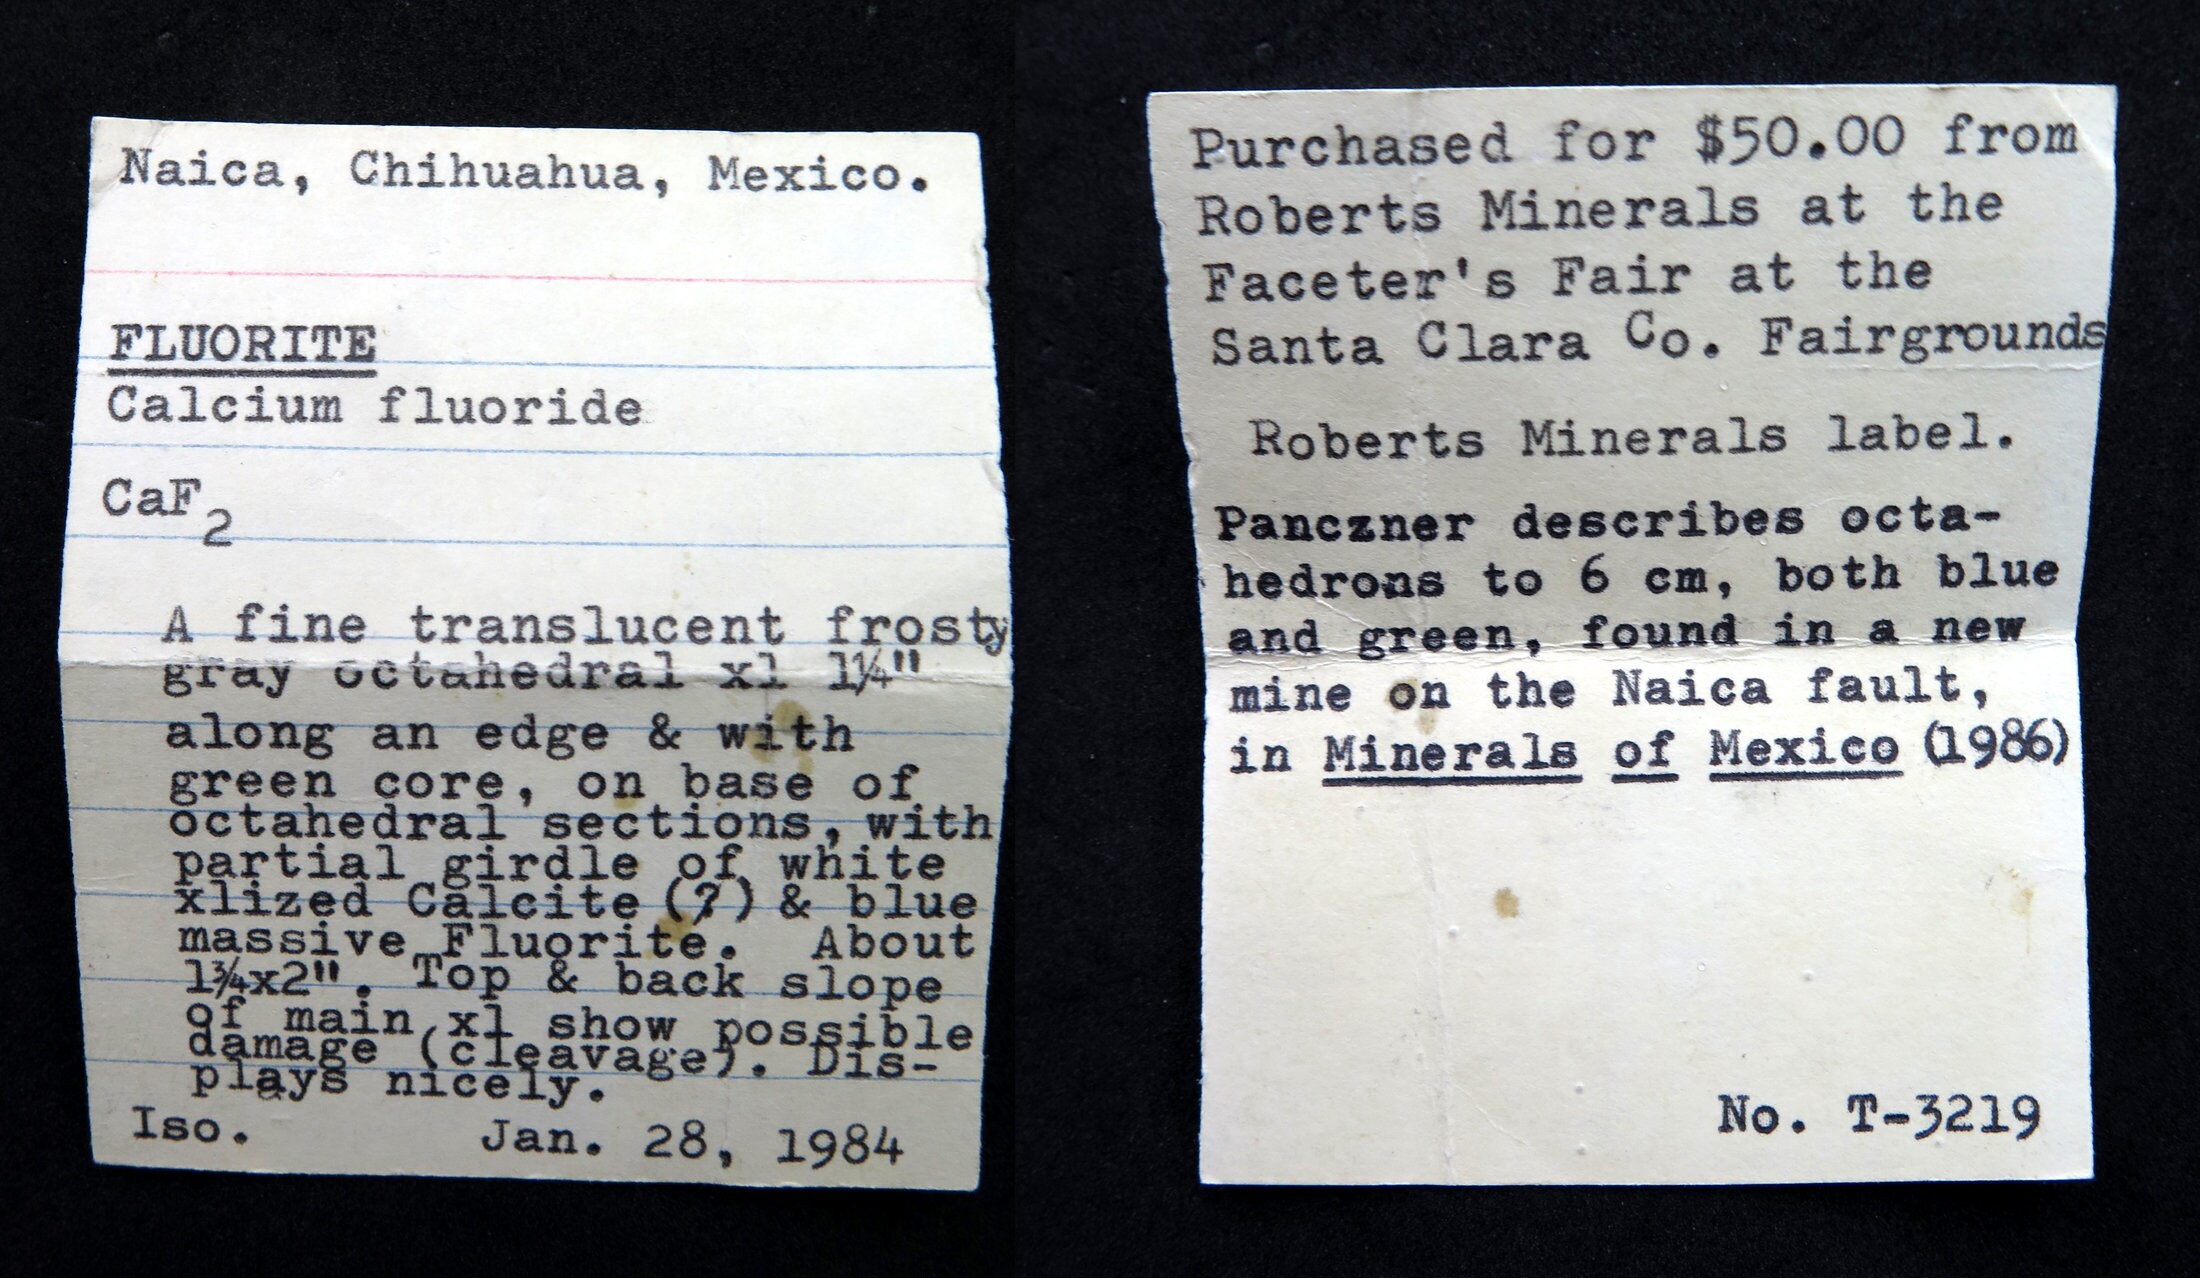 Naica, Chihuahua, Mexico.
FLUORITE
Calcium fluoride
CaF2
A fine translucent frosty
gray octahedral xl 1¼"
along an edge & with
green core, on base of
octahedral sections, with
partial girdle of white
xlized Calcite (?) & blue
massive Fluorite. About
1¾x2". Top & back slope
of main xl show possible
damage (cleavage). Dis-
plays nicely.
Iso. Jan. 28, 1984
Purchased for $50.00 from
Roberts Minerals at the
Faceter's Fair at the
Santa Clara Co. Fairgrounds
Roberts Minerals label.
Panczner describes octa-
hedrons to 6 cm, both blue
and green, found in a new
mine on the Naica fault,
in Minerals of Mexico (1986)
No. T-3219